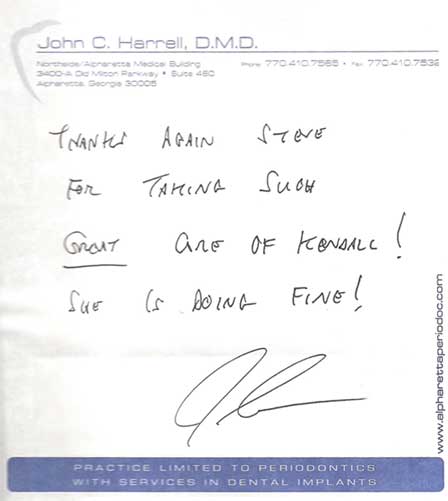 John C. Harrell, D.M.D.
Northside/Alpharetta Medical Building
3400-A Old Milton Parkway • Suite 460
Alpharetta, Georgia 30005
Phone 770.410.7565 • Fax 770.410.7532
THANKS AGAIN STEVE
FOR TAKING SUCH
GREAT CARE OF KENDALL!
SHE IS DOING FINE!
www.alpharettaperiodoc.com
PRACTICE LIMITED TO PERIODONTICS
WITH SERVICES IN DENTAL IMPLANTS